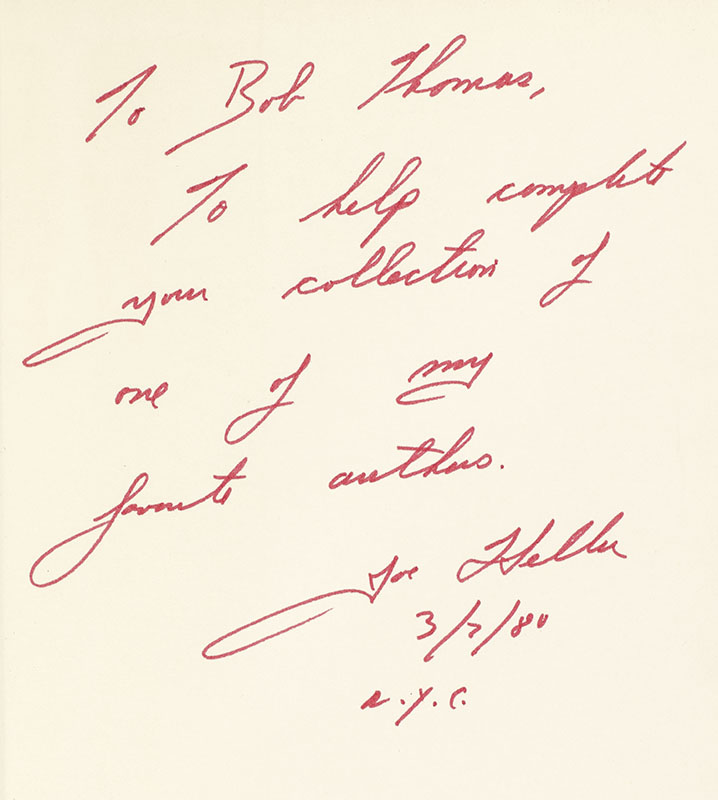 To Bob Thomas,
To help complete
your collection of
one of my
favorite authors.
Joe Heller
3/7/80
N.Y.C.